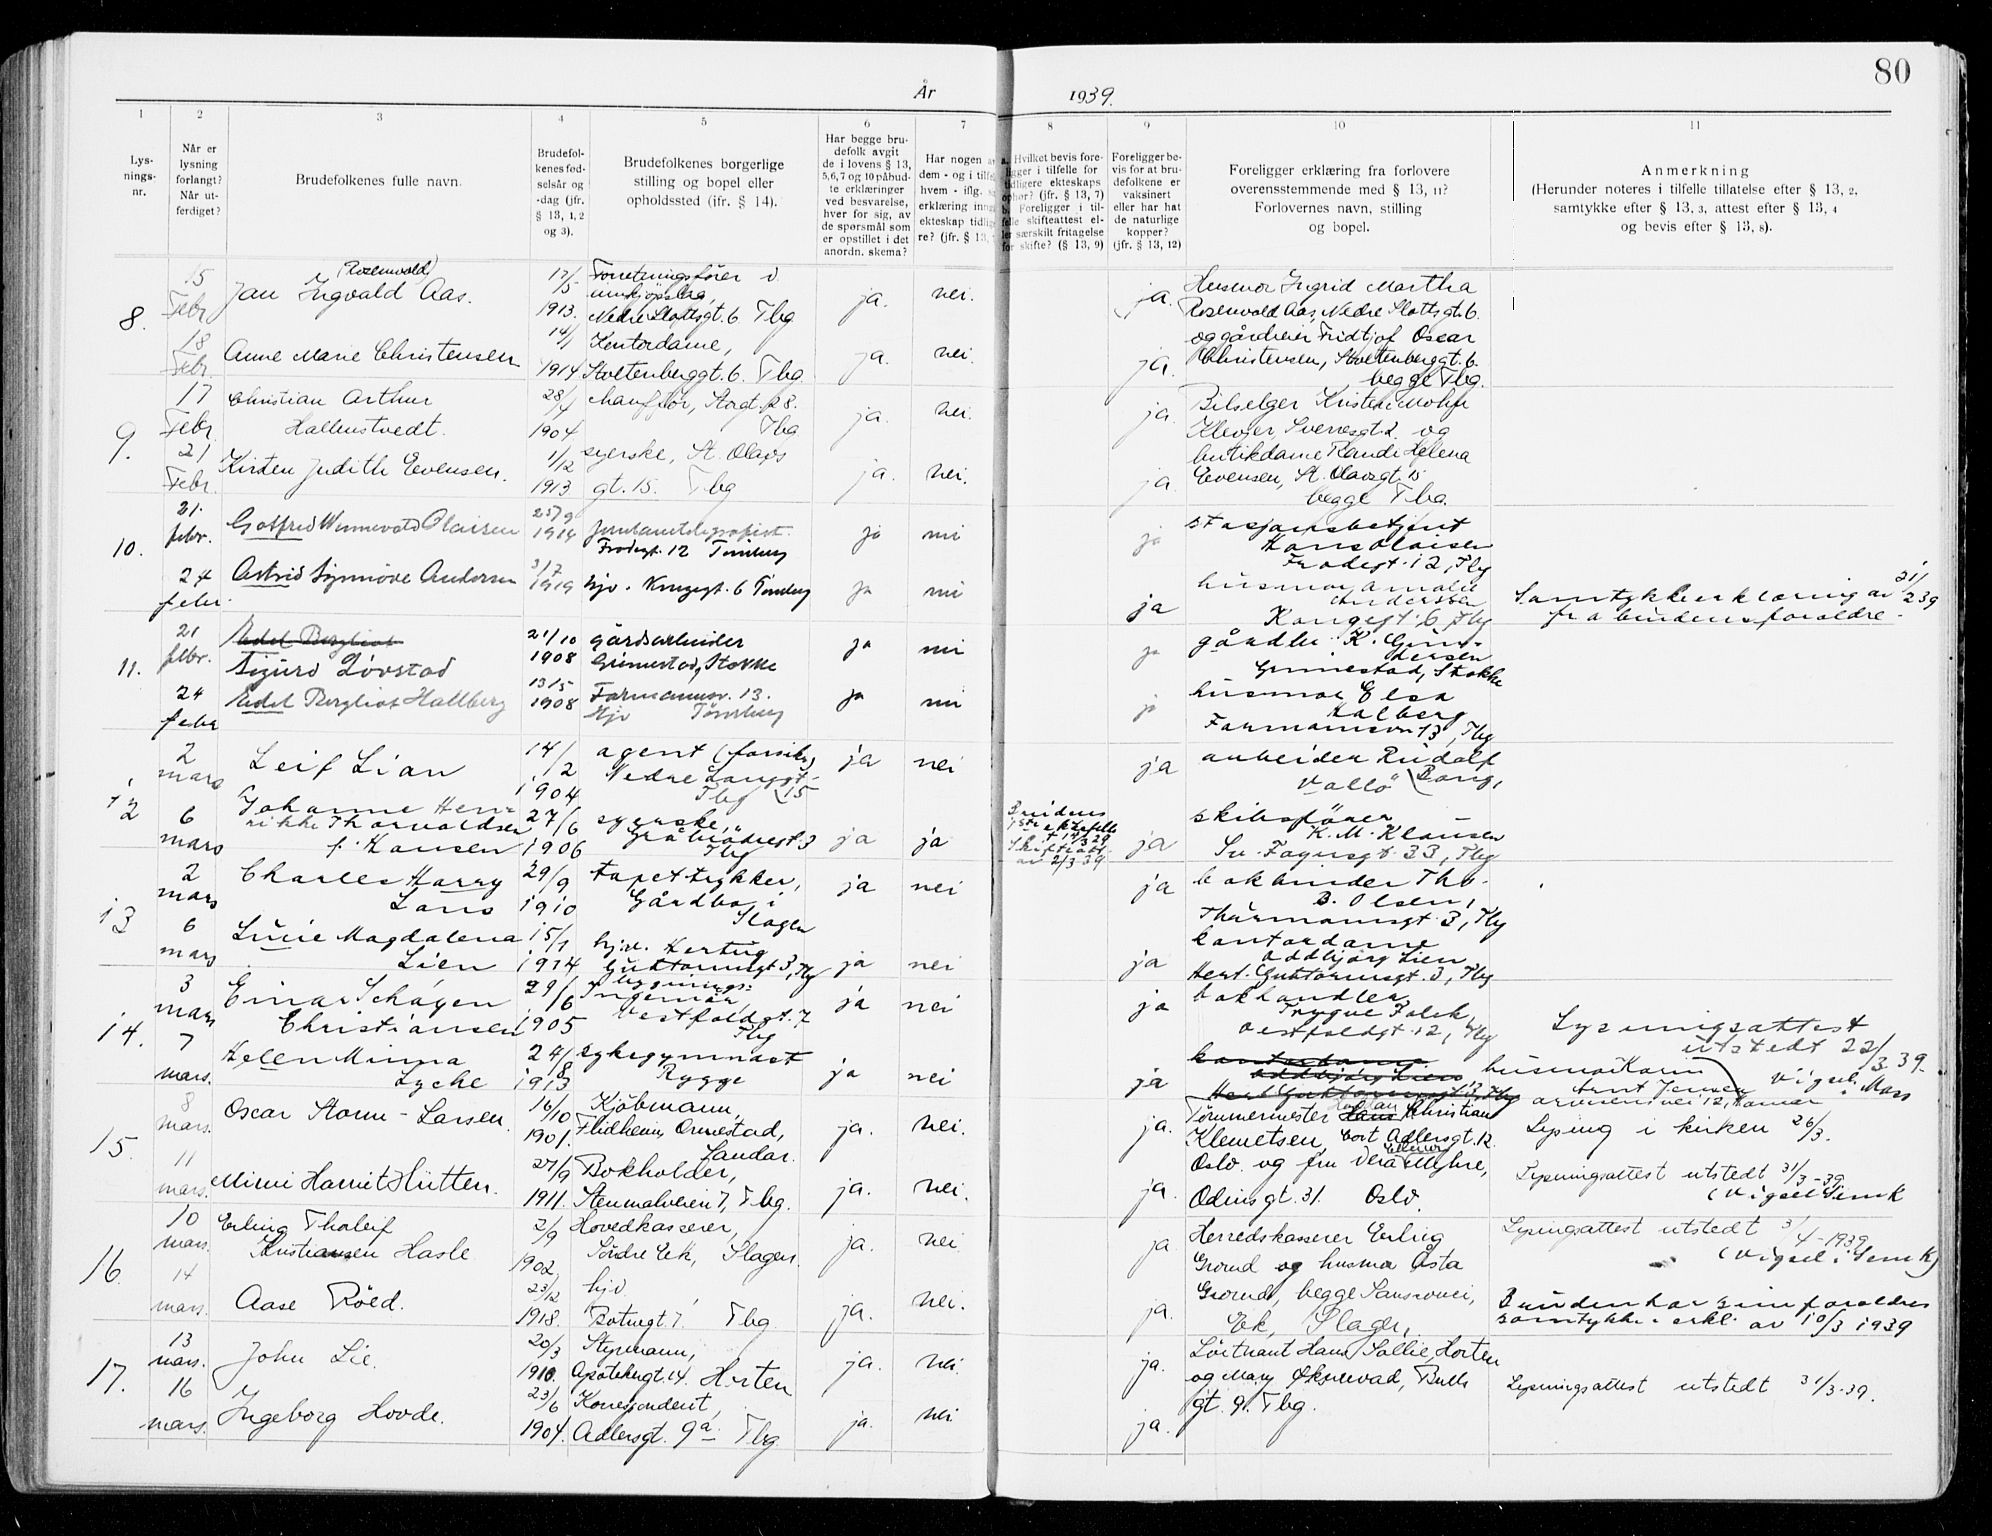 80
År 1939.
1
2
3
4
5
6
7
8
9
10
11
Lys-
nings-
nr.
Når er
lysning
forlangt?
Når ut-
ferdiget?
Brudefolkenes fulle navn.
Brudefol-
kenes fød-
selsår og
-dag (jfr.
§ 13, 1, 2
og 3).
Brudefolkenes borgerlige
stilling og bopel eller
opholdssted (ifr. § 14).
Har begge bru-
defolk avgit
de i lovens § 13,
5, 6, 7 og 10 påbud-
te erklæringer
ved besvarelse,
hver for sig, av
de spørsmål som
er opstillet i det
anordn. skema?
Har nogen a
dem - og i tilfe
hvem - iflg.
erklæring inng
ekteskap tidlig
re? (jfr. § 13,
a. Hvilket bevis fore-
ligger i tilfelle for
tidligere ekteskaps
ophør? (jfr. § 13, 7)
b. Foreligger i til-
felle skifteattest el-
ler særskilt fritagelse
for skifte? (§ 13, 9)
Foreligger be-
vis for at bru-
defolkene er
vaksinert
eller har hat
de naturlige
kopper?
(jfr. § 13, 12)
Foreligger erklæring fra forlovere
overensstemmende med § 13, 11?
Forlovernes navn, stilling
og bopel.
Anmerkning
(Herunder noteres i tilfelle tillatelse efter § 13, 2.
samtykke efter § 13, 3, attest efter § 13, 4
og bevis efter § 13, 8).
8.
15 Febr.
(Rosenvold)
Jan Ingvald Aas.
17/5 1913.
Forretningsfører i
innkjøpslag,
Nedre Slottsgt. 6 Tbg
ja. nei.
ja.
Husmor Ingrid Martha
Rosenvold Aas, Nedre Slottsgt. 6.
og gårdeier Fridtjof Oscar
Christensen, Stoltenberggt. 6.
begge Tbg.
18 Febr.
Anne Marie Christensen
14/1 1914
Kontordame,
Stoltenberggt. 6. Tbg
ja. nei.
ja.
9.
17 Febr.
Christian Arthur
Hallenstvedt.
28/4 1904
Chauffør, Storgt. 28.
Tbg
ja. nei.
ja.
Bilselger Kristen Mohn
Klever Sverresgt. 2. og
butikdame Randi Helena
Evensen, St. Olavsgt. 15
begge Tbg.
21 Febr.
Kirsten Judith Evensen.
1/12 1913
syerske, St. Olavs
gt. 15. Tbg
ja. nei.
ja.
10.
21. febr.
Gotfred Wennevold Olaisen
25/9 1914
Frodegt. 12 Tønsberg
ja nei
ja
stasjonsbetjent
Hans Olaisen
Frodegt. 12, Tbg
24 febr.
Astrid Synnøve Andersen
3/7 1919
hjv. Kongegt. 6 Tønsberg
ja nei
ja
husmor Amalie
Andersen
Kongegt. 6, Tbg
Samtykkeerklæring av 21/2 39
fra brudens foreldre.
11.
21 febr.
Edel Bergliot
Sigurd Løvstad
21/10 1908
gårdsarbeider
Gunnestad, Stokke
ja nei
ja
gårdbr. K. Gun-
dersen
Gunnestad, Stokke
24 febr
Edel Bergliot Hallberg
13/5 1908
Farmannsv. 13.
Hjv Tønsberg
ja nei
ja
husmor Elsa
Halberg
Farmannsv. 13, Tbg
12
2 mars
Leif Lian
14/12 1904
agent (forsikr)
Nedre Langgt.
Tbg 15
ja nei
ja
arbeider Rudolf
Vallø (Bang,
6 mars
Johanne Hen-
rikke Thorvaldsen
f. Hansen
27/6 1906
syerske,
Gråbrødregt. 3
Tbg
ja ja
Brudens
1ste ektefelle
† 14/3 29
Skifteatt.
av 2/3 39
ja
skibsfører
K. M. Klausen
Sv. Foynsgt. 33, Tbg
13
2 mars
Charles Harry
Lans
29/9 1910
tapettrykker,
Gårdbo i
Slagen
ja nei
ja
bokbinder Thv.
B. Olsen,
Thürmannsgt. 3, Tbg
6 mars
Lucie Magdalena
Lien
15/1 1914
hjv. Hertug
Guttormsgt 3, Tbg
ja nei
ja
kontordame
Oddbjørg Lien
Hert. Guttormsgt. 3, Tbg
14.
3 mars
Einar Schøyen
Christiansen
29/6 1905
bygnings-
ingeniør,
Vestfoldgt. 7
Tbg
ja nei
ja
bokhandler
Trygve Falck,
Vestfoldgt. 12, Tbg
Lysningsattest
utstedt 22/3 39.
7 mars.
Helen Minna
Lyche
24/8 1913
sykegymnast
Rygge
ja nei
ja
kontordame
Oddbjørg Lien
Hert. Guttormsgt. 3, Tbg
husmor Karin
Arnt Jensen
Vigsel: Moss
15.
8 mars.
Oscar Storm-Larsen.
16/10 1901.
Kjøbmann,
Flidheim, Ormestad,
Sandar.
ja. nei.
ja.
Tømmermester Hans Christian
Klemetsen, Cort Adlersgt. 12.
Oslo og fru Vera Myhre,
Odinsgt. 31. Oslo.
Lysning i kirken 26/3.
11 mars.
Mimi Harriet Hütten.
27/9 1911.
Bokholder,
Stenmalveien 7, Tbg.
ja. nei.
ja.
Lysningsattest utstedt 31/3-39
(Vigsel: Semk
16.
10 mars.
Erling Tholeif
Kristiansen Hasle
2/9 1902.
Hovedkasserer,
Søndre Eik, Slagen.
ja. nei.
ja
Herredskasserer Erling
Grorud og husmor Asta
Grorud, begge Sansrovei,
Eik, Slagen,
Lysningsattest utstedt 3/4-1939
(Vigsel: Semk)
14 mars.
Aase Røed.
23/12 1918.
hjv.
Botnegt. 7. Tbg
ja. nei.
ja.
Bruden har sine foreldres
samtykke-erkl. av 10/3 1939
17.
13 mars.
John Lie.
20/3 1910.
Styrmann,
Apotekergt. 14. Horten
ja. nei
ja.
Løitnant Hans Sollie, Horten
og Mary Øksnevad, Bulls
gt. 9. Tbg.
16 mars.
Ingeborg Hovde.
23/6 1904.
Korrespondent,
Adlersgt. 9a Tbg
ja. nei
ja.
Lysningsattest utstedt 31/3-39.